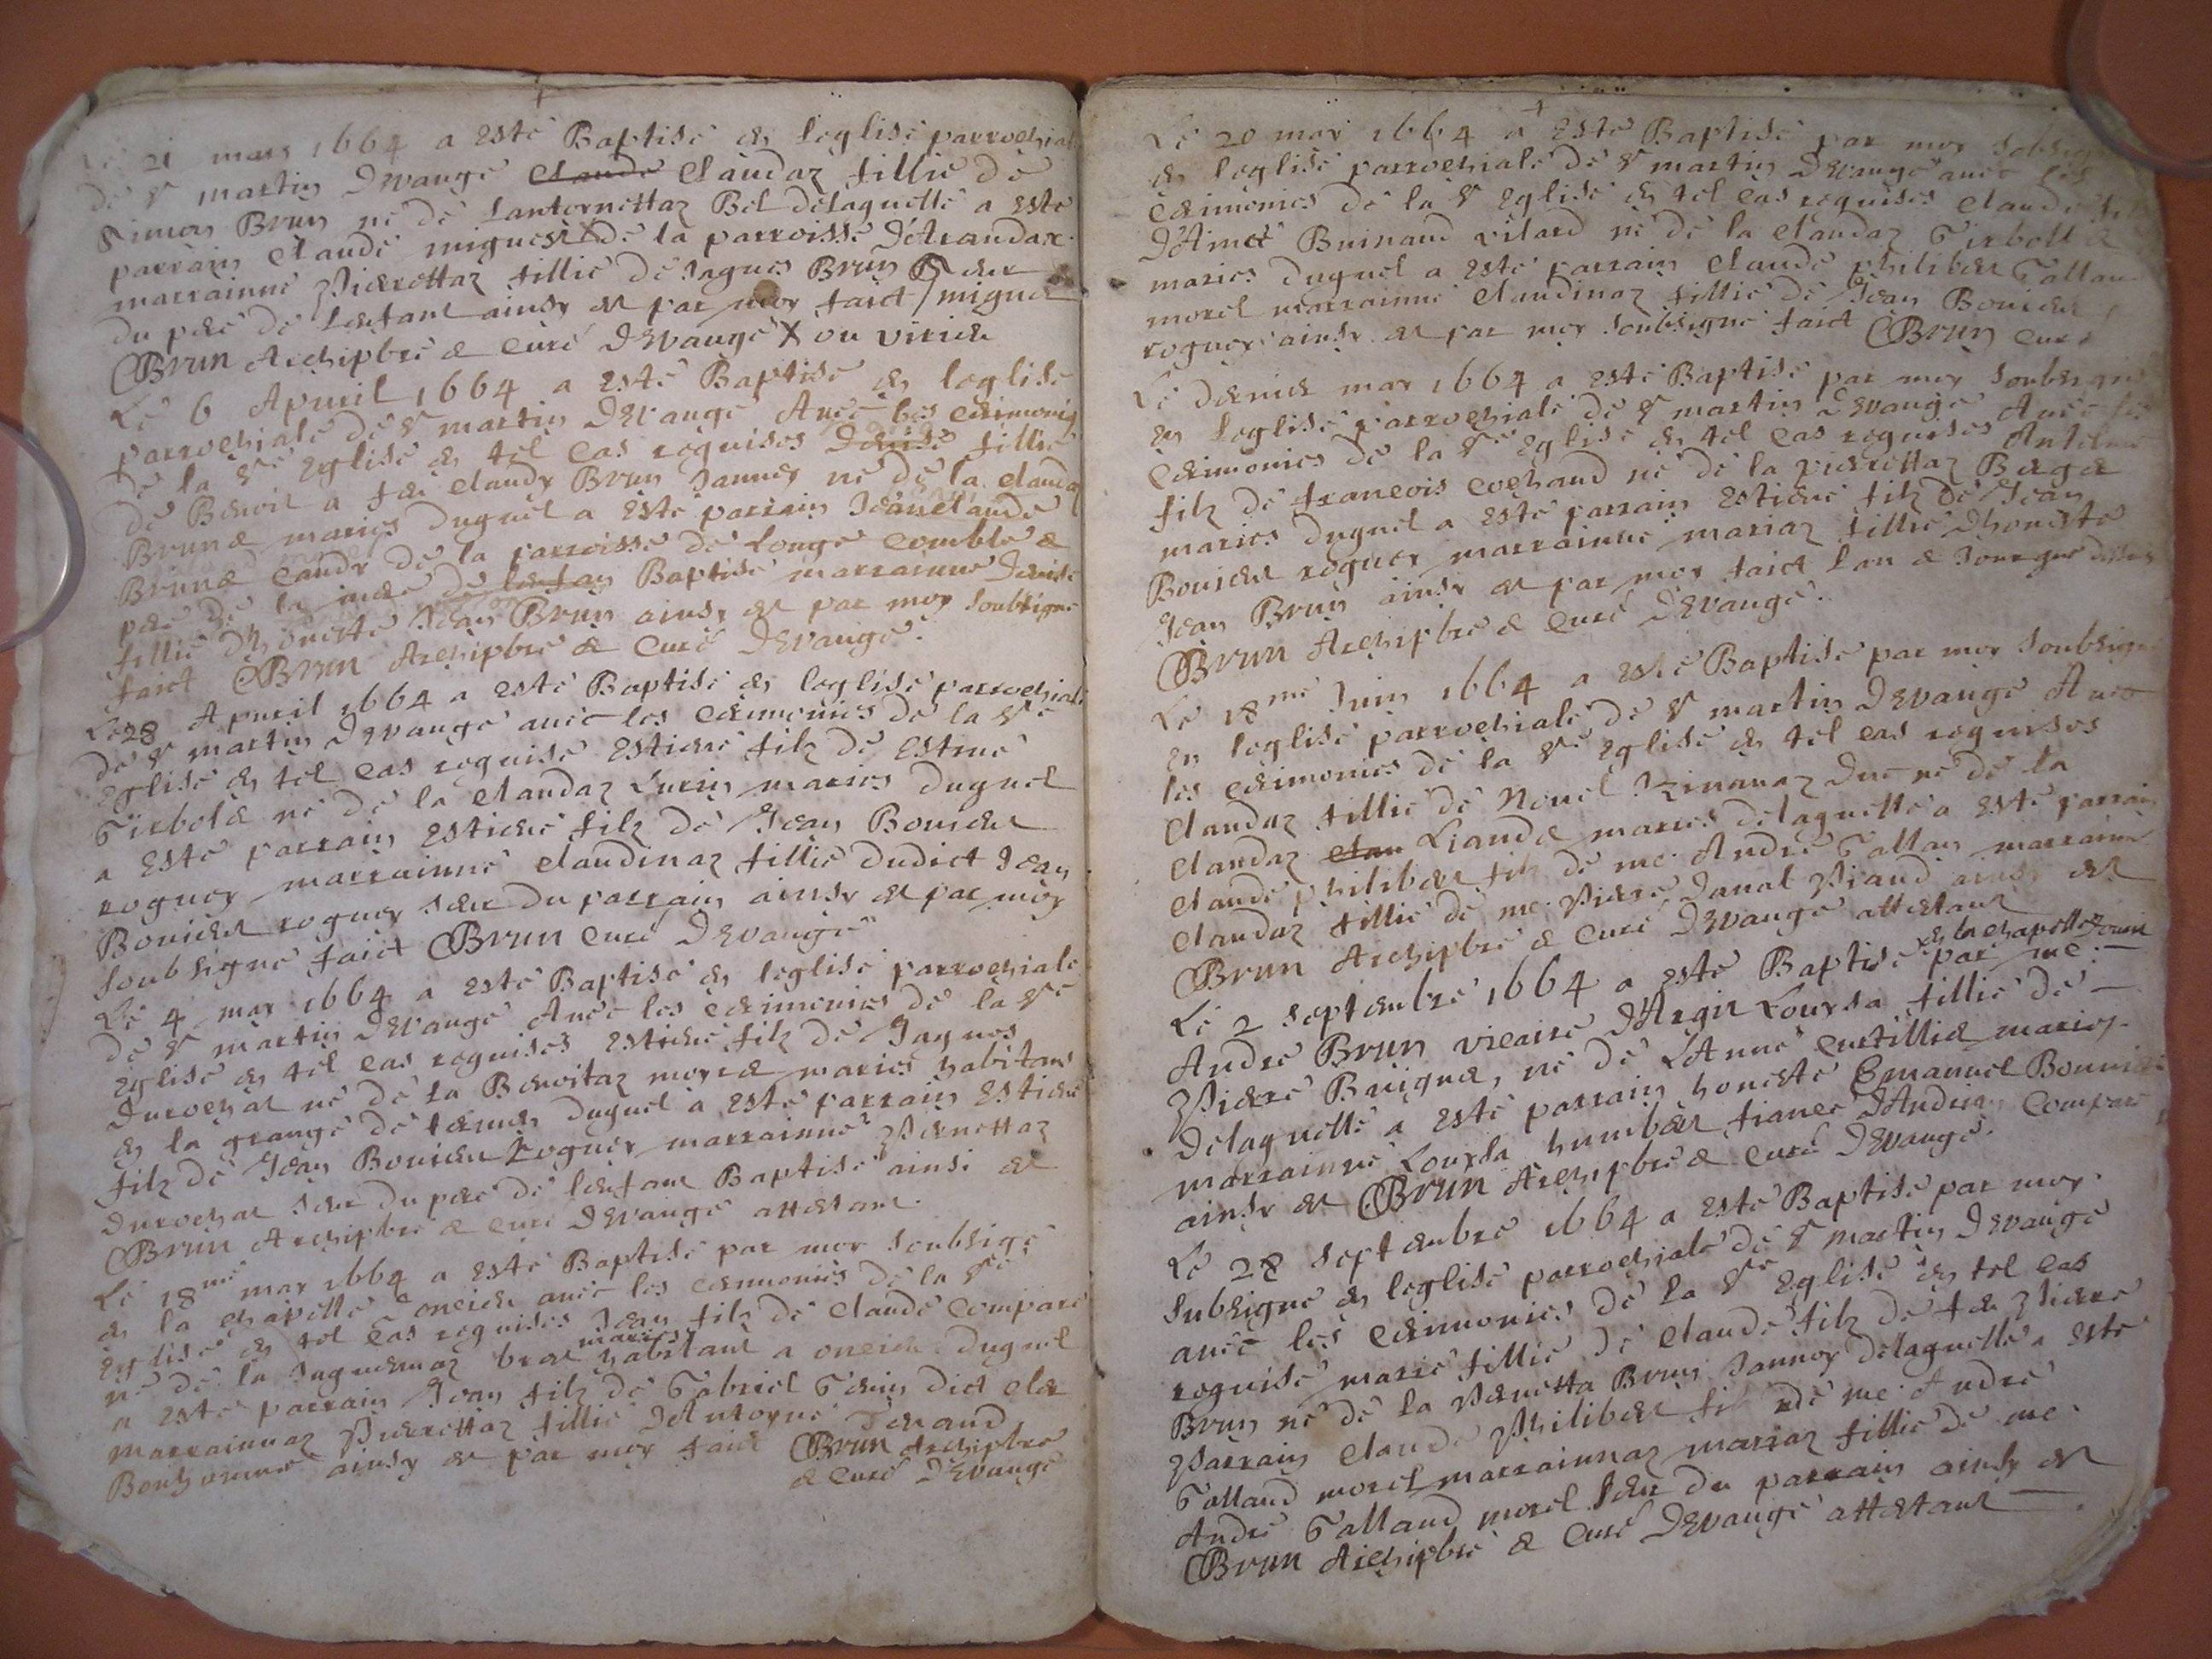 Le 21 mars 1664 a este Baptisé en leglise parrochiale
de St martin Devange Claude Claudaz fillie de
Simon Brun né de Lantornettaz Bel delaquelle a este
parrain Claude miguet X de la parroisse d'Arandax
marrainne Pierrettaz fillie de Jaques Brun soeur
du pere de Lenfant ainsy est par moy faict / miguet
Brun Archiptre & Curé Devange X ou virieu
Le 6 Apuril 1664 a esté Baptisé en leglise
parrochiale de St martin Devange Avec les cerimonies
de la Ste Eglise en tel cas requises Denise fillie
de Benoit a feu Claudy Brun Janney né de la Clauda
Brun & maries duquel a esté parrain Jean Claude
Brun & Caudy de la parroisse de Longecomble &
pere de la mere de lenfan Baptisé marrainne Denise
fillie dhoneste Jean Brun ainsy est par moy soubsigné
faict Brun Archiptre & Curé Devange.
Le 28 Apuril 1664 a esté Baptisé en leglise parrochiale
de St martin Devange avec les cerimonies de la Ste
Eglise en tel cas requise Estiene filz de Estiene
Tirbolet né de la Claudaz Lurin maries duquel
a esté parrain Estiene filz de Jean Bouvier
roguey marrainne Claudinaz fillie dudict Jean
Bouvier roguey soeur du parrain ainsy est par moy
soubsigné faict Brun Curé Devange
Le 4 may 1664 a esté Baptisé en leglise parrochiale
de St martin Devange Avec les cerimonies de la Ste
Eglise en tel cas requises Estiene filz de Jaques
Durochat né de la Benoitaz moyret maries habitans
en la grange de duquel a esté parrain Estiene
filz de Jean Bouvier Roguey marrainne Pernettaz
Durochat soeur du pere de lenfant Baptisé ainsi est
Brun Archiptre & Curé Devange attestant.
Le 18me may 1664 a esté Baptisé par moy soubsigé
en la chapelle Doncieu avec les cerimonies de la Ste
Eglise en tel cas requises Jean filz de Claude Compare
né de la Jaquemaz maries habitant a oncieu duquel
a esté parrain Jean filz de Gabriel dict
marrainnaz Pierrettaz fillie d'Antoyne
Bonhomme ainsy est par moy faict Brun Archiptre
& Curé Devange
Le 20 may 1664 a esté Baptisé par moy soubsigné
en leglise parrochiale de St martin Devange avec les
cerimonies de la St Eglise en tel cas requises Claude filz
d'Aimé Buinand vilard né de la Claudaz Tirbollet
maries duquel a esté parrain Claude philibert Tallaud
morel marrainne Claudinaz fillie de Jean Bouvier
roguey ainsy est par moy soubsigné faict Brun Curé
Le dernier may 1664 a esté Baptisé par moy soubsigné
en leglise parrochiale de St martin Devange Avec les
cerimonies de la Ste Eglise en tel cas requises Antelme
filz de francois Cochand né de la pierrettaz Berger
maries duquel a esté parrain Estiene filz de Jean
Bouvier roguey marrainne mariaz fillie dhoneste
Jean Brun ainsy est par moy faict Lan & Jour que dessus
Brun Archiptre & Curé Devange.
Le 18me Juin 1664 a esté Baptisé par moy soubsigné
en leglise parrochiale de St martin Devange Avec
les cerimonies de la Ste Eglise en tel cas requises
Claudaz fillie de Nouel Duc né de la
Claudaz Clau Liandet maries delaquelle a esté parrain
Claude philibert filz de me. Andre Tallan marrainne
Claudaz fillie de me. Pierre Janal Viaud ainsy est
Brun Archiptre & Curé Devange attestant
Le 2 septembre 1664 a esté Baptisé en la chapelle Douin par me.
Andre Brun vicaire d'Argit Louysa fillie de
Pierre Buiguet, né de L'Anne Curtillier maries
Delaquelle a esté parrain honeste Emanuel Bouvier
marrainne Louysa humbert fiancé Compare
ainsy est Brun Archiptre & Curé Devange.
Le 28 septembre 1664 a esté Baptisé par moy
subsigné en leglise parrochiale de St martin Devange
avec les cerimonies de la Ste Eglise en tel cas
requise marie fillie de Claude filz de feu Pierre
Brun né de la Pernetta Brun Jannoy delaquelle a esté
Parrain Claude Philibert filz de me. Andre
Tallaud morel marrainnaz mariaz fillie de me.
Andre Tallaud morel soeur du parrain ainsy est
Brun Archiptre & Curé Devange attestant